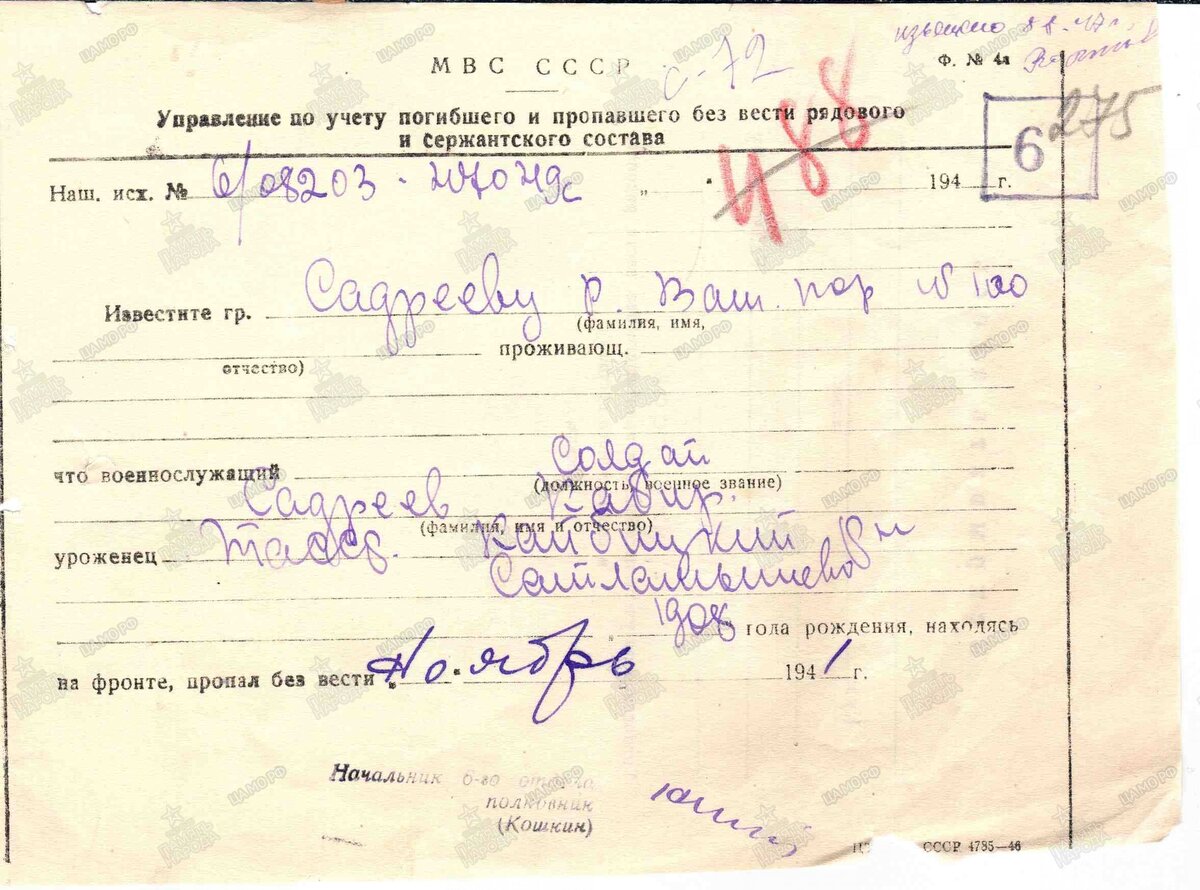 извещено 8 8 47 г.
МВС СССР
с-72
Ф. № 4а
488
275
6
Управление по учету погибшего и пропавшего без вести рядового
и сержантского состава
Наш. исх. № 6/08203 - июня „ " 194 г.
Известите гр. Садрееву Р. Ваш. пор № 100
(фамилия, имя,
проживающ.
отчество)
что военнослужащий солдат
(должность, военное звание)
Садреев Кабир.
(фамилия, имя и отчество)
уроженец Тасср. Кайбицкий р н
Сатламышево
1908 года рождения, находясь
на фронте, пропал без вести „ " Ноябрь 1941 г.
Начальник 6-го отдела
полковник
(Кошкин)
СССР 4785—46
ЦАМО РФ
ПАМЯТЬ НАРОДА